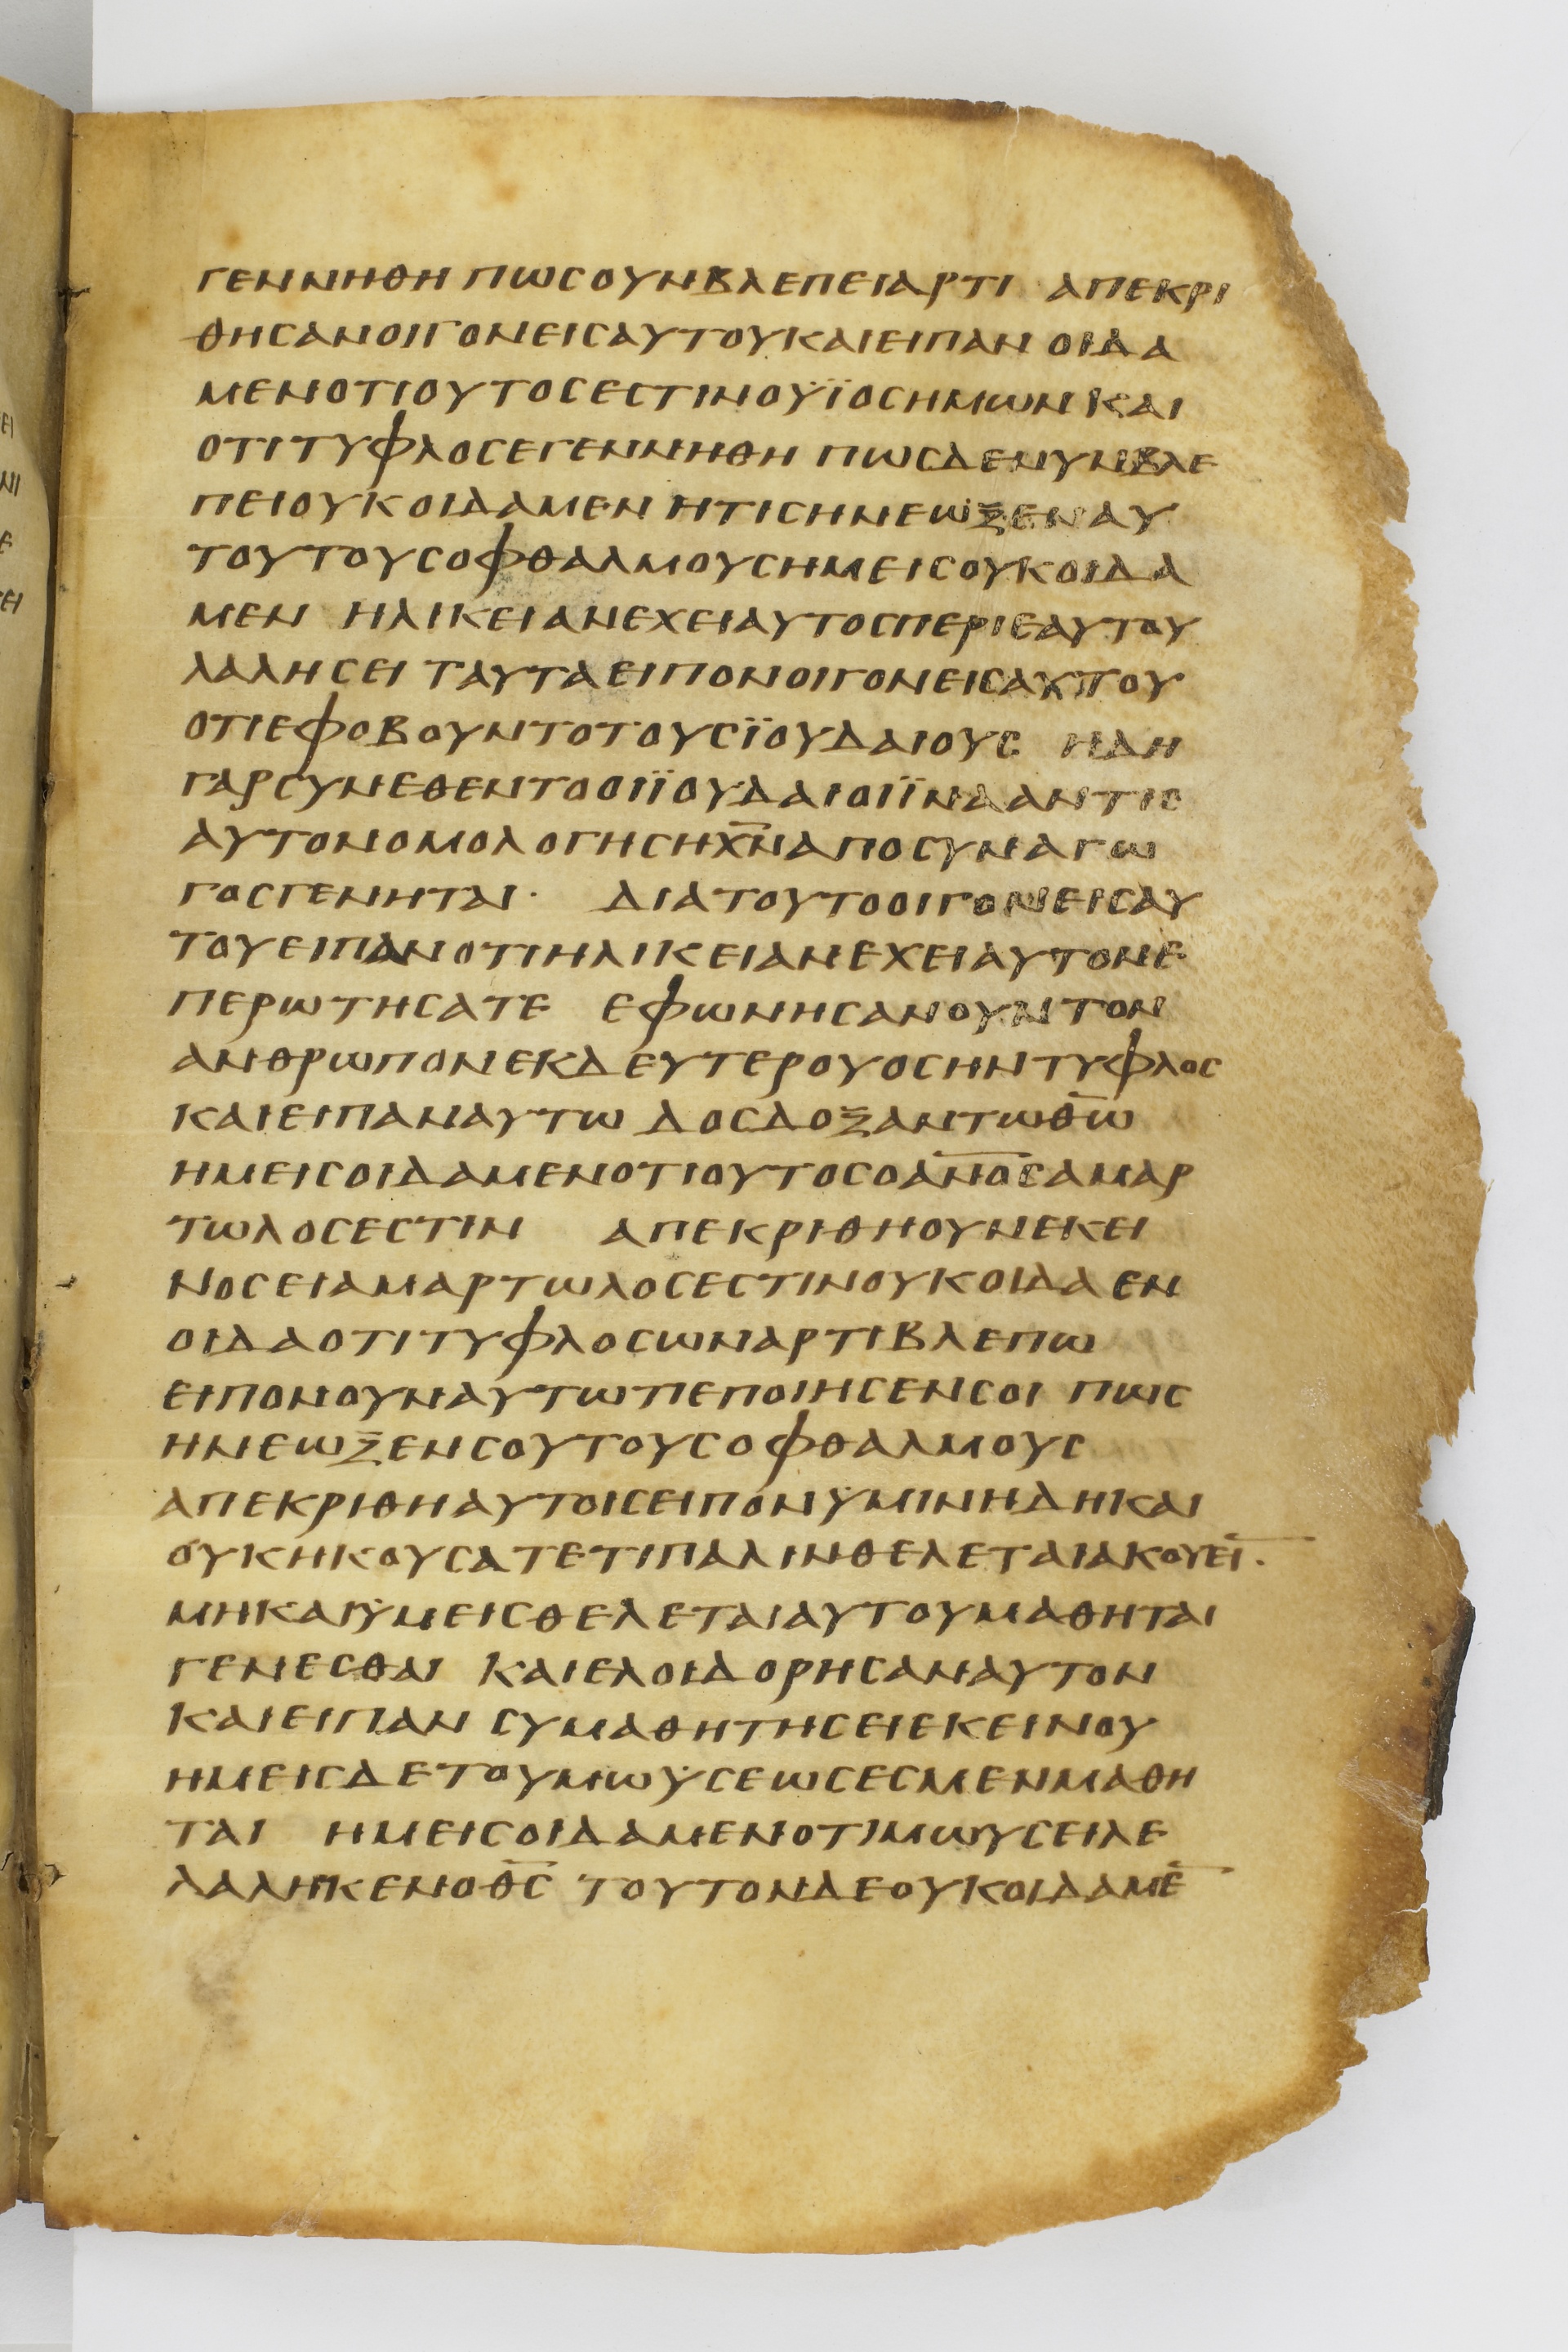 ΓΕΝΝΗΘΗ ΠΩϹΟΥΝΒΛΕΠΕΙΑΡΤΙ ΑΠΕΚΡΙ
ΘΗϹΑΝΟΙΓΟΝΕΙϹΑΥΤΟΥΚΑΙΕΙΠΑΝ ΟΙΔΑ
ΜΕΝΟΤΙΟΥΤΟϹΕϹΤΙΝΟΫΪΟϹΗΜΩΝ ΚΑΙ
ΟΤΙΤΥΦΛΟϹΕΓΕΝΝΗΘΗ ΠΩϹΔΕΝΥΝΒΛΕ
ΠΕΙΟΥΚΟΙΔΑΜΕΝ ΗΤΙϹΗΝΕΩΞΕΝΑΥ
ΤΟΥΤΟΥϹΟΦΘΑΛΜΟΥϹΗΜΕΙϹΟΥΚΟΙΔΑ
ΜΕΝ ΗΛΙΚΕΙΑΝΕΧΕΙΑΥΤΟϹΠΕΡΙΕΑΥΤΟΥ
ΛΑΛΗϹΕΙ ΤΑΥΤΑΕΙΠΟΝΟΙΓΟΝΕΙϹΑΥΤΟΥ
ΟΤΙΕΦΟΒΟΥΝΤΟΤΟΥϹΪΟΥΔΑΙΟΥϹ ΗΔΗ
ΓΑΡϹΥΝΕΘΕΝΤΟΟΙΪΟΥΔΑΙΟΙΪΝΑΑΝΤΙϹ
ΑΥΤΟΝΟΜΟΛΟΓΗϹΗΧ̅Ν̅ΑΠΟϹΥΝΑΓΩ
ΓΟϹΓΕΝΗΤΑΙ· ΔΙΑΤΟΥΤΟΟΙΓΟΝΕΙϹΑΥ
ΤΟΥΕΙΠΑΝΟΤΙΗΛΙΚΕΙΑΝΕΧΕΙΑΥΤΟΝΕ
ΠΕΡΩΤΗϹΑΤΕ ΕΦΩΝΗϹΑΝΟΥΝΤΟΝ
ΑΝΘΡΩΠΟΝΕΚΔΕΥΤΕΡΟΥΟϹΗΝΤΥΦΛΟϹ
ΚΑΙΕΙΠΑΝΑΥΤΩ ΔΟϹΔΟΞΑΝΤΩΘ̅Ω̅
ΗΜΕΙϹΟΙΔΑΜΕΝΟΤΙΟΥΤΟϹΟΑ̅Ν̅Ο̅Ϲ̅ΑΜΑΡ
ΤΩΛΟϹΕϹΤΙΝ ΑΠΕΚΡΙΘΗΟΥΝΕΚΕΙ
ΝΟϹΕΙΑΜΑΡΤΩΛΟϹΕϹΤΙΝΟΥΚΟΙΔΑ ΕΝ
ΟΙΔΑΟΤΙΤΥΦΛΟϹΩΝΑΡΤΙΒΛΕΠΩ
ΕΙΠΟΝΟΥΝΑΥΤΩΤΙΕΠΟΙΗϹΕΝϹΟΙ ΠΩϹ
ΗΝΕΩΞΕΝϹΟΥΤΟΥϹΟΦΘΑΛΜΟΥϹ
ΑΠΕΚΡΙΘΗΑΥΤΟΙϹΕΙΠΟΝΫΜΙΝΗΔΗΚΑΙ
ΟΥΚΗΚΟΥϹΑΤΕΤΙΠΑΛΙΝΘΕΛΕΤΑΙΑΚΟΥΕΙ̅·
ΜΗΚΑΙΫΜΕΙϹΘΕΛΕΤΑΙΑΥΤΟΥΜΑΘΗΤΑΙ
ΓΕΝΕϹΘΑΙ ΚΑΙΕΛΟΙΔΟΡΗϹΑΝΑΥΤΟΝ
ΚΑΙΕΙΠΑΝ ϹΥΜΑΘΗΤΗϹΕΙΕΚΕΙΝΟΥ
ΗΜΕΙϹΔΕΤΟΥΜΩΫϹΕΩϹΕϹΜΕΝΜΑΘΗ
ΤΑΙ ΗΜΕΙϹΟΙΔΑΜΕΝΟΤΙΜΩΥϹΕΙΛΕ
ΛΑΛΗΚΕΝΟΘ̅Ϲ̅ ΤΟΥΤΟΝΔΕΟΥΚΟΙΔΑΜΕ̅